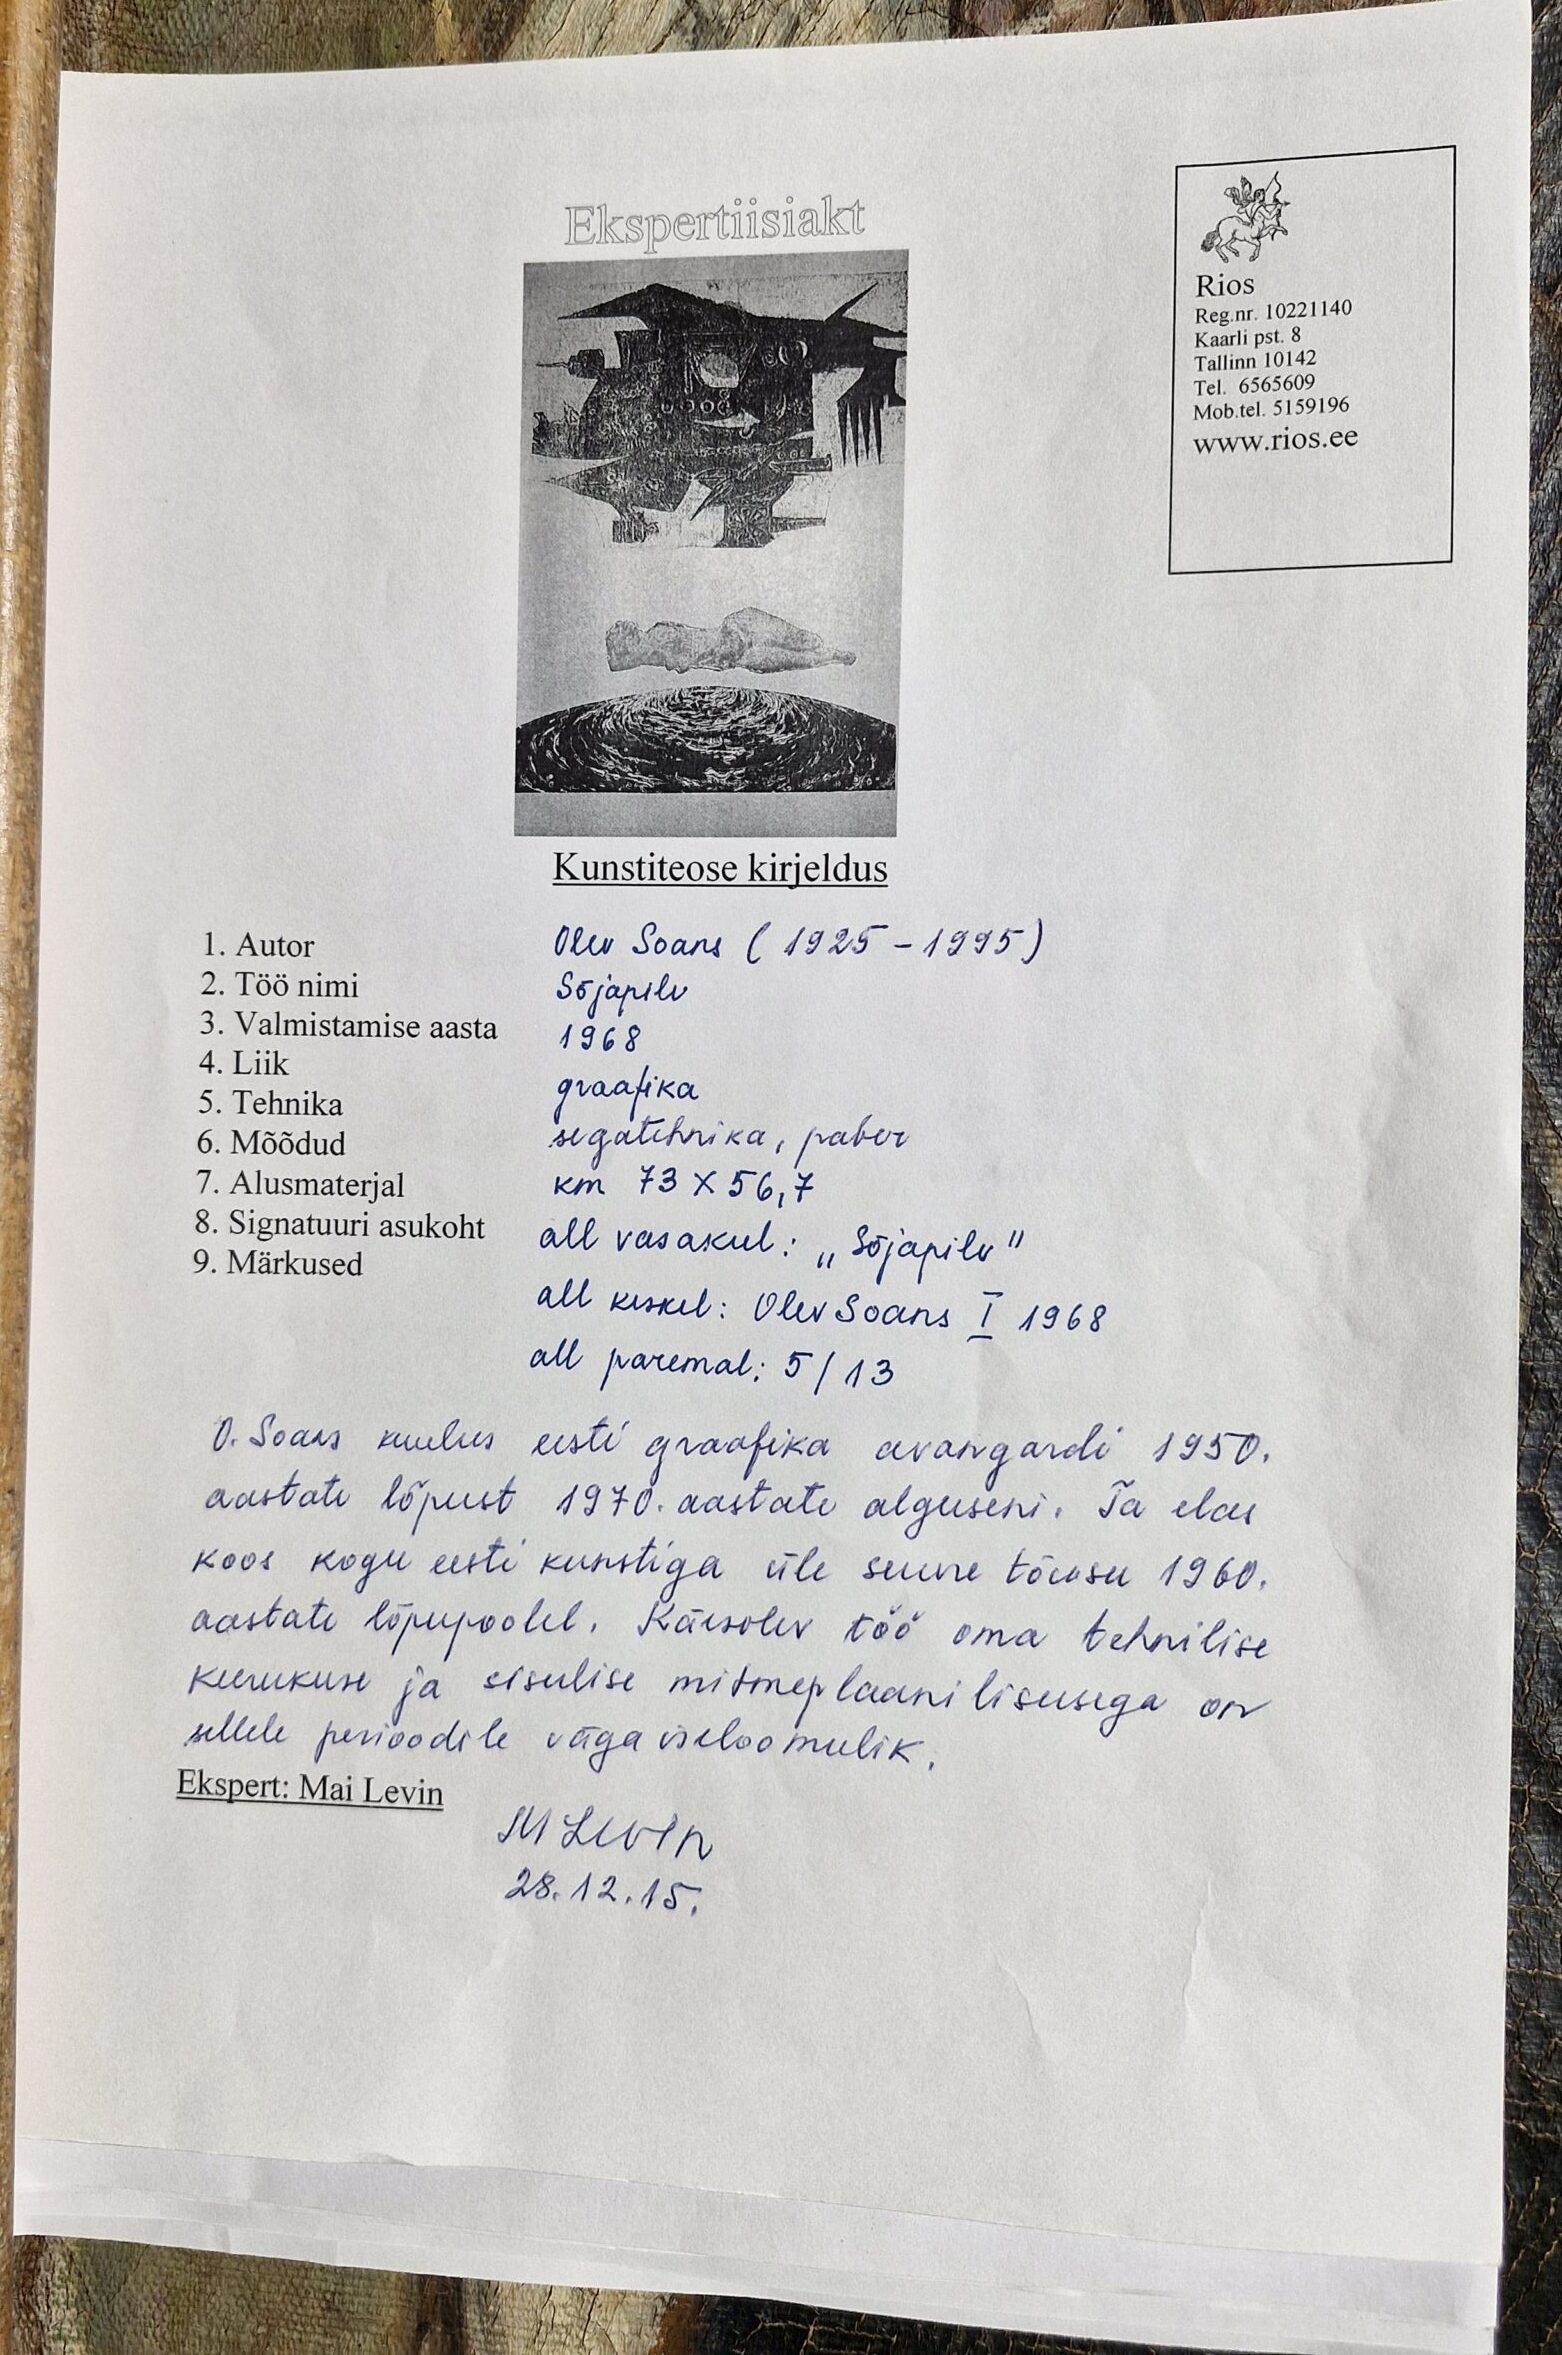 Ekspertiisiakt
Rios
Reg.nr. 10221140
Kaarli pst. 8
Tallinn 10142
Tel. 6565609
Mob.tel. 5159196
www.rios.ee
Kunstiteose kirjeldus
1. Autor Olev Soans (1925-1995)
2. Töö nimi Sõjapilv
3. Valmistamise aasta 1968
4. Liik graafika
5. Tehnika segatehnika, paber
6. Mõõdud km 73 X 56,7
7. Alusmaterjal
8. Signatuuri asukoht all vasakul: „Sõjapilv"
9. Märkused
all keskel: Olev Soans I 1968
all paremal: 5/13
O. Soans kuulus eesti graafika avangardi 1950.
aastate lõpust 1970. aastate alguseni. Ta elas
koos kogu eesti kunstiga üle suure tõusu 1960.
aastate lõpupoolel. Käesolev töö oma tehnilise
keerukuse ja sisulise mitmeplaanilisusega on
sellele perioodile väga iseloomulik.
Ekspert: Mai Levin
M Levin
28.12.15.